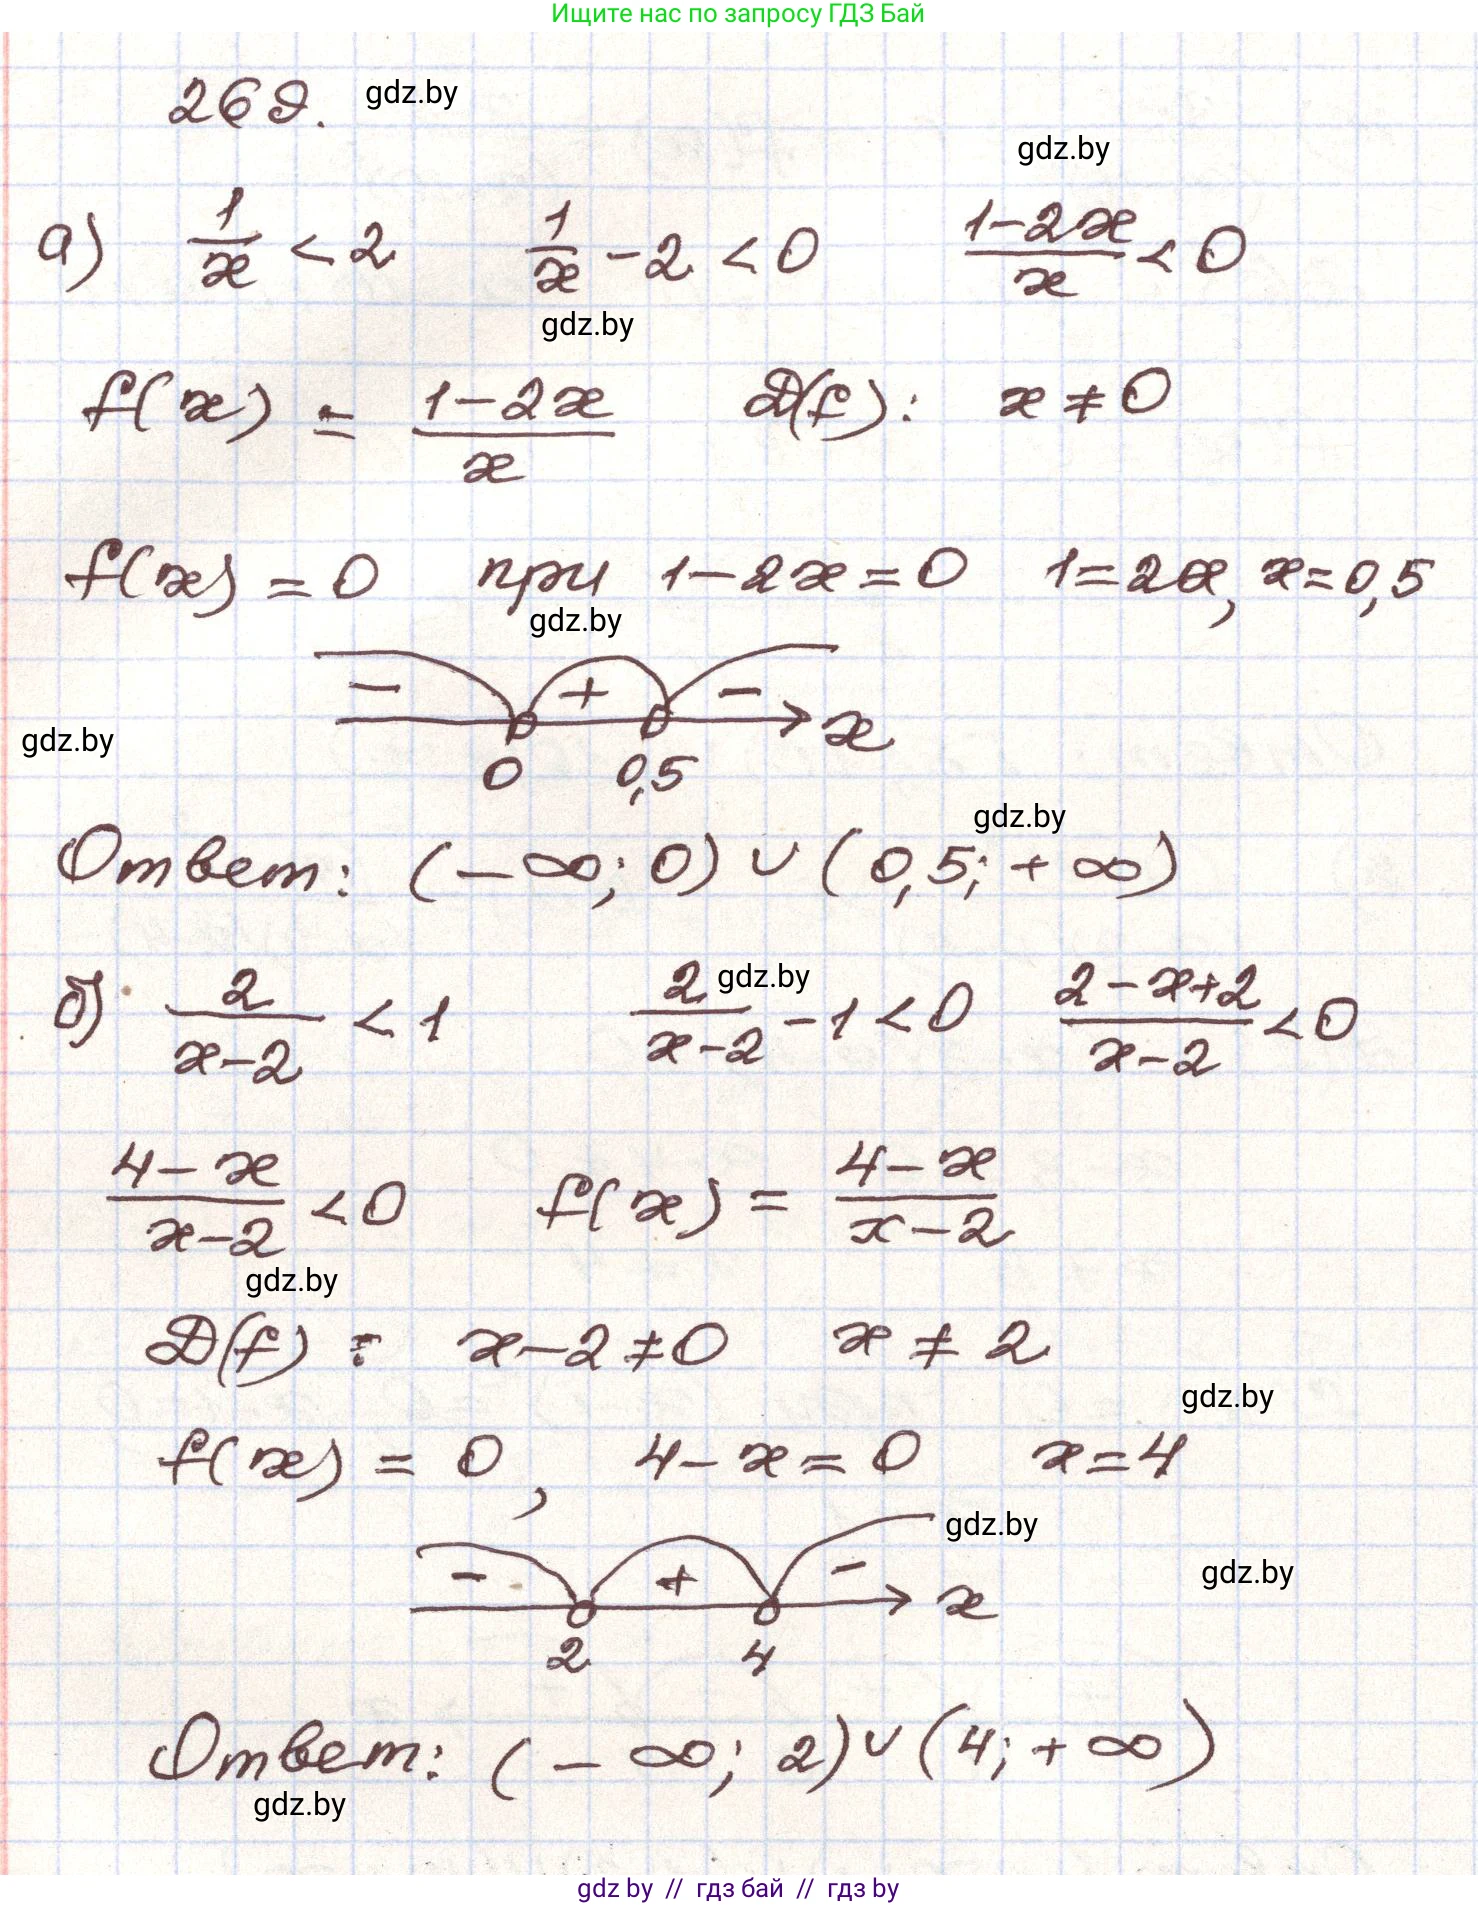 Ищите нас по запросу ГДЗ Бай
269. gdz.by
gdz.by
а) 1/x < 2   1/x - 2 < 0   (1-2x)/x < 0
gdz.by
f(x) = (1-2x)/x   D(f): x ≠ 0
f(x) = 0 при 1-2x=0   1=2x, x=0,5
gdz.by
- + - x
gdz.by
0 0,5
gdz.by
Ответ: (-∞; 0) ∪ (0,5; +∞)
gdz.by
б) 2/(x-2) < 1   2/(x-2) - 1 < 0   (2-x+2)/(x-2) < 0
(4-x)/(x-2) < 0   f(x) = (4-x)/(x-2)
gdz.by
D(f): x-2≠0   x ≠ 2
gdz.by
f(x) = 0, 4-x=0   x=4
gdz.by
- + - x
gdz.by
2 4
Ответ: (-∞; 2) ∪ (4; +∞)
gdz.by
gdz by // гдз бай // гдз by